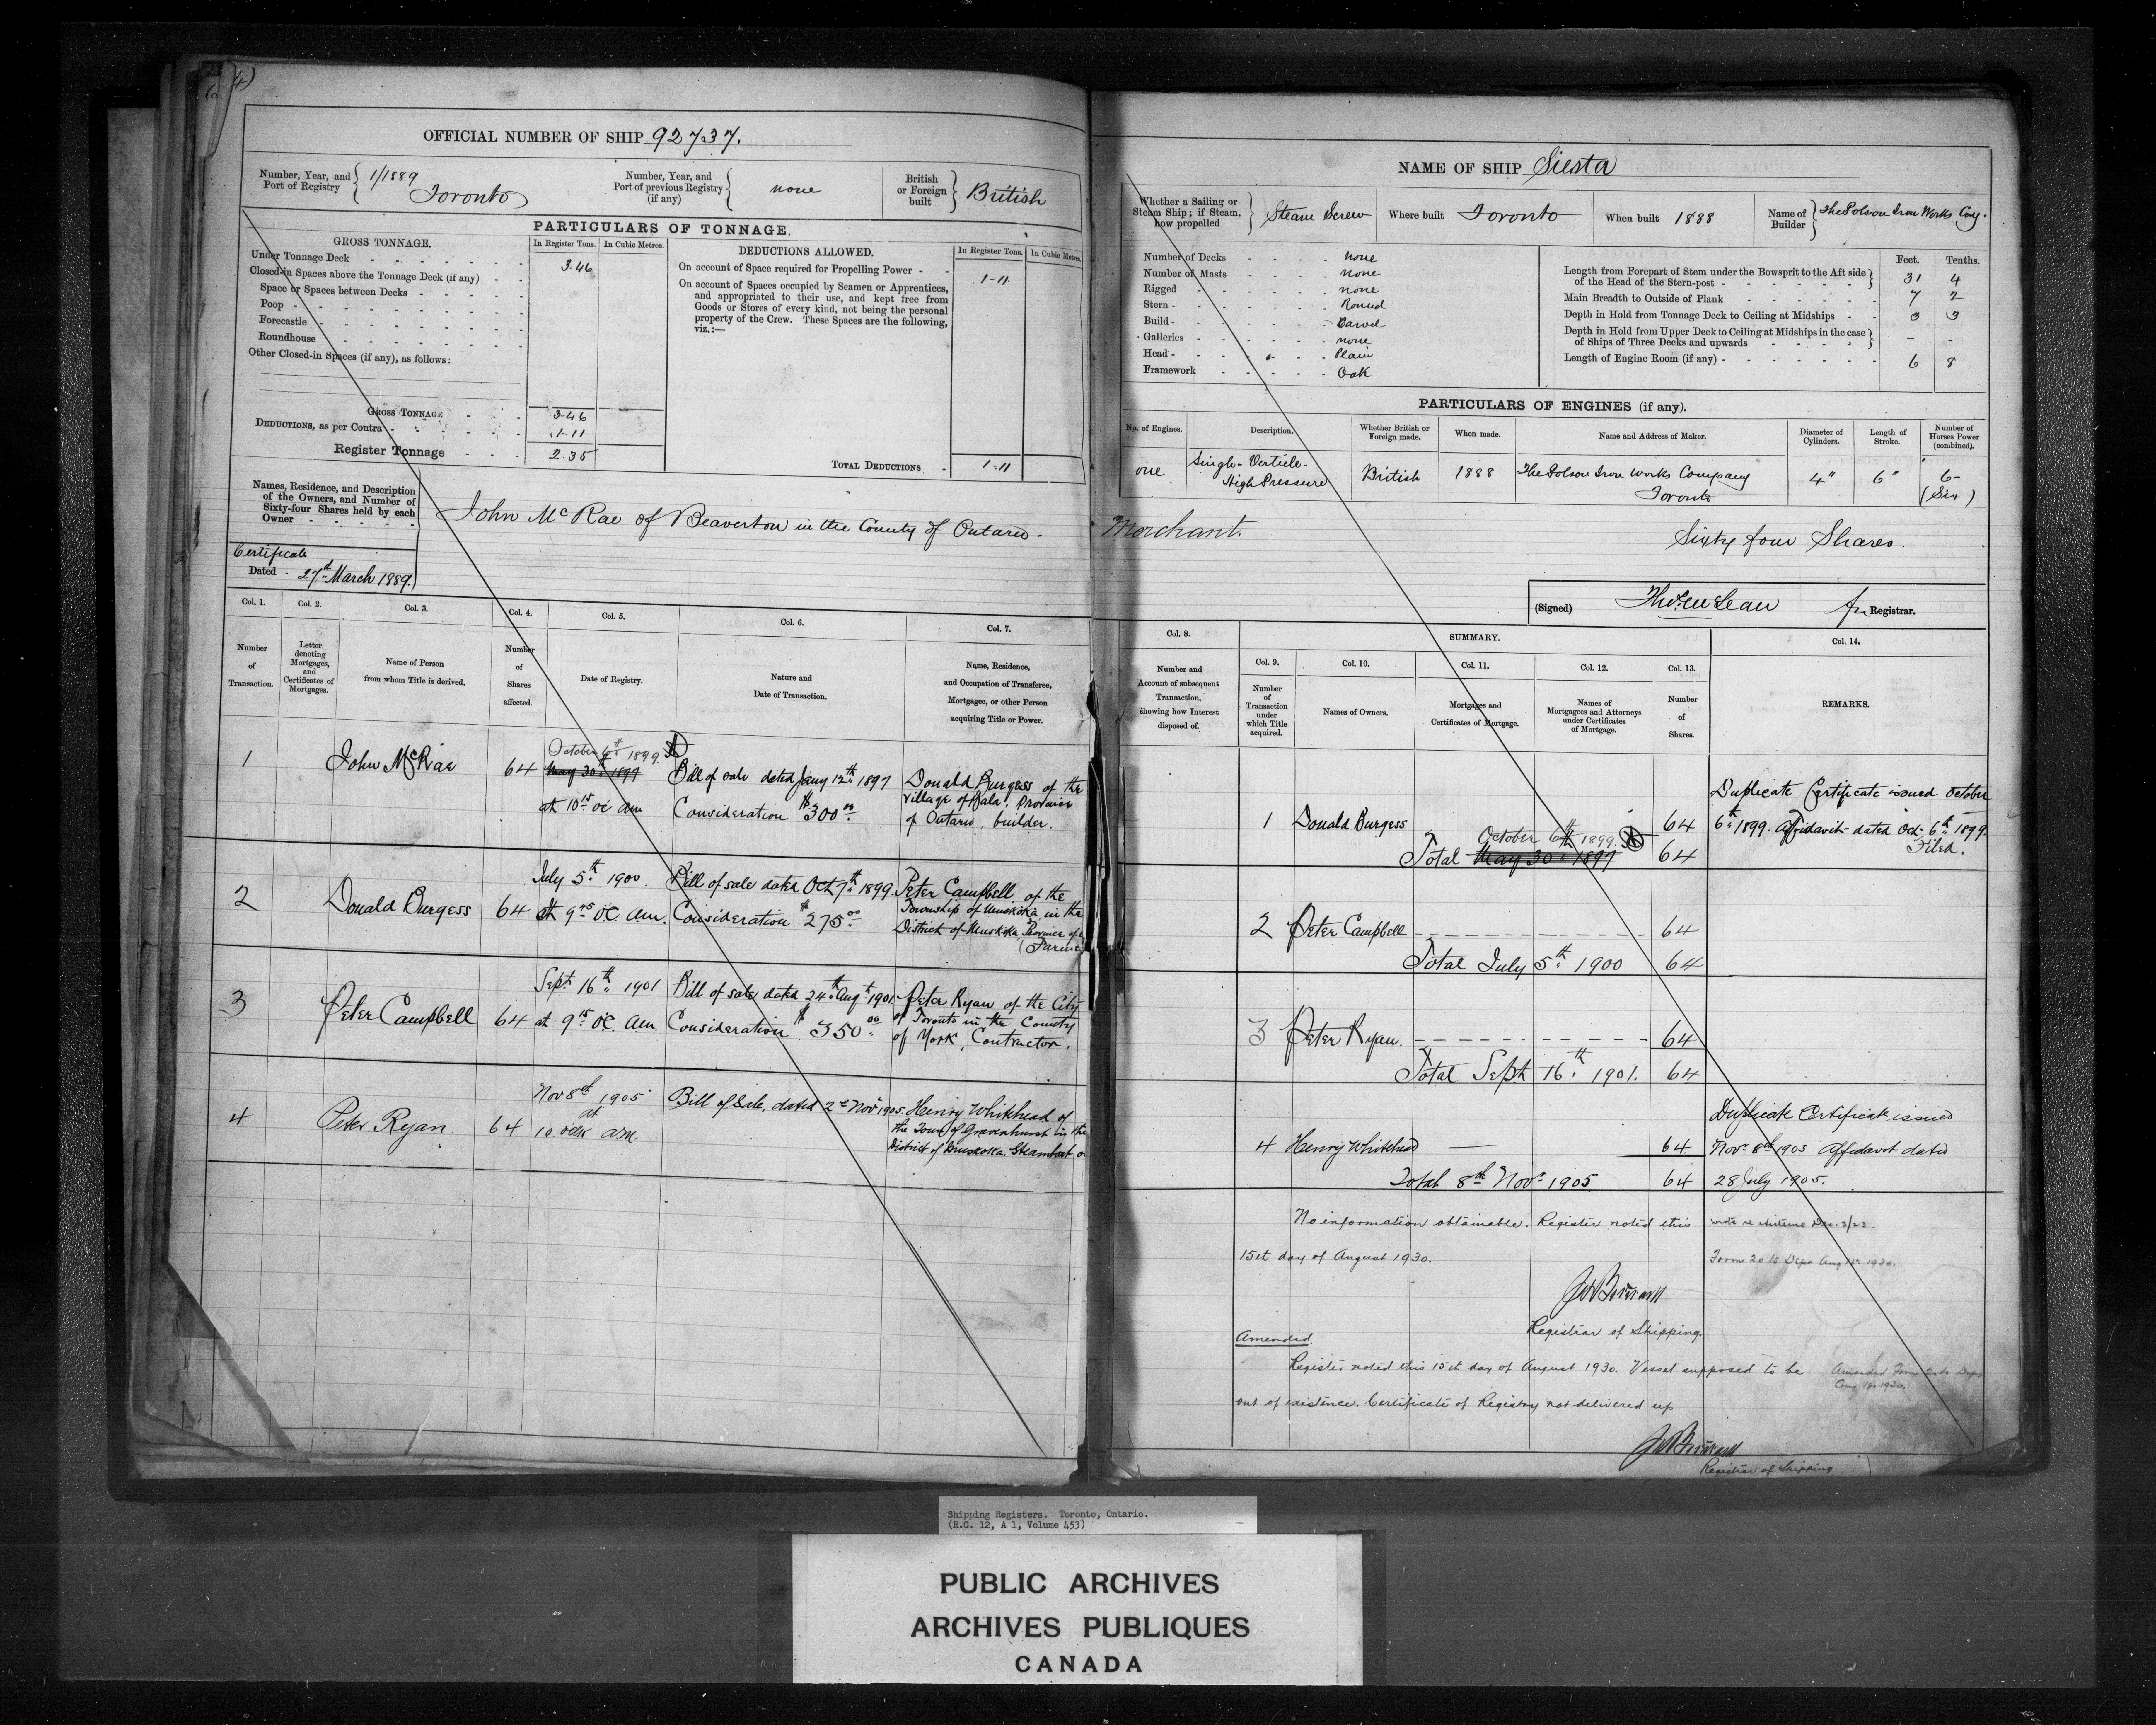 OFFICIAL NUMBER OF SHIP 92737.
Number, Year, and Port of Registry 1/1889 Toronto
Number, Year, and Port of previous Registry (if any) none
British or Foreign built British
PARTICULARS OF TONNAGE.
GROSS TONNAGE. In Register Tons. In Cubic Metres.
Under Tonnage Deck 3.46
Closed-in Spaces above the Tonnage Deck (if any)
Space or Spaces between Decks
Poop
Forecastle
Roundhouse
Other Closed-in Spaces (if any), as follows:
GROSS TONNAGE 3.46
DEDUCTIONS, as per Contra 1-11
Register Tonnage 2.35
DEDUCTIONS ALLOWED. In Register Tons. In Cubic Metres.
On account of Space required for Propelling Power 1-11
On account of Spaces occupied by Seamen or Apprentices,
and appropriated to their use, and kept free from
Goods or Stores of every kind, not being the personal
property of the Crew. These Spaces are the following,
viz.:—
TOTAL DEDUCTIONS 1-11
Names, Residence, and Description
of the Owners, and Number of
Sixty-four Shares held by each
Owner
John McRae of Beaverton in the County of Ontario.
Certificate
Dated 27th March 1889.
Col. 1. Col. 2. Col. 3. Col. 4. Col. 5. Col. 6. Col. 7.
Number of Transaction.
Letter denoting Mortgages, and Certificates of Mortgages.
Name of Person from whom Title is derived.
Number of Shares affected.
Date of Registry.
Nature and Date of Transaction.
Name, Residence, and Occupation of Transferee, Mortgagee, or other Person acquiring Title or Power.
1 John McRae 64
October 6th 1899.
May 30th 1899
at 10 15 oc am
Bill of sale dated Jany 12th 1897
Consideration $300 00
Donald Burgess of the
Village of Bala, Province
of Ontario, builder.
2 Donald Burgess 64
July 5th 1900
at 9 45 oc. am.
Bill of sale dated Oct 7th 1899
Consideration $275 00
Peter Campbell, of the
Township of Muskoka in the
District of Muskoka Province of
(Farmer
3 Peter Campbell 64
Sept 16th 1901
at 9 15 oc. am
Bill of sale dated 24th Augt 1901
Consideration $350 00
Peter Ryan of the City
of Toronto in the County
of York, Contractor.
4 Peter Ryan 64
Nov 8th 1905
at
10 oclk am.
Bill of Sale, dated 2nd Novr 1905
Henry Whitehead of
the Town of Gravenhurst in the
District of Muskoka Steamboat
NAME OF SHIP Siesta
Whether a Sailing or Steam Ship; if Steam, how propelled Steam Screw
Where built Toronto
When built 1888
Name of Builder The Polson Iron Works Coy.
Number of Decks none
Number of Masts none
Rigged none
Stern Round
Build Carvel
Galleries none
Head Plain
Framework Oak
Feet. Tenths.
Length from Forepart of Stem under the Bowsprit to the Aft side of the Head of the Stern-post 31 4
Main Breadth to Outside of Plank 7 2
Depth in Hold from Tonnage Deck to Ceiling at Midships 3 3
Depth in Hold from Upper Deck to Ceiling at Midships in the case of Ships of Three Decks and upwards - -
Length of Engine Room (if any) 6 8
PARTICULARS OF ENGINES (if any).
No. of Engines. Description. Whether British or Foreign made. When made. Name and Address of Maker. Diameter of Cylinders. Length of Stroke. Number of Horses Power (combined).
one Single-Verticle- High Pressure British 1888 The Polson Iron Works Company Toronto 4" 6" 6- (Six)
Merchant. Sixty four Shares
(Signed) Registrar.
Col. 8. SUMMARY. Col. 14.
Col. 9. Col. 10. Col. 11. Col. 12. Col. 13.
Number and Account of subsequent Transaction, showing how Interest disposed of.
Number of Transaction under which Title acquired.
Names of Owners.
Mortgages and Certificates of Mortgage.
Names of Mortgagees and Attorneys under Certificates of Mortgage.
Number of Shares.
REMARKS.
1 Donald Burgess 64
October 6th 1899.
Total May 30th 1899 64
Duplicate Certificate issued October
6th 1899. Affidavit dated Oct. 6th 1899.
Filed.
2 Peter Campbell 64
Total July 5th 1900 64
3 Peter Ryan. 64
Total Sept 16th 1901. 64
4 Henry Whitehead 64
Total 8th Novr 1905 64
Duplicate Certificate issued
Novr 8th 1905 Affidavit dated
28 July 1905.
No information obtainable. Register noted this
15th day of August 1930.
wrote re existence Dec. 3/23.
Form 20 to Dept Aug 1930.
Registrar of Shipping.
Amended.
Register noted this 15th day of August 1930. Vessel supposed to be
out of existence. Certificate of Registry not delivered up
Amended Form 20 to Dept
Aug 1930.
Registrar of Shipping
Shipping Registers. Toronto, Ontario.
(R.G. 12, A 1, Volume 453)
PUBLIC ARCHIVES
ARCHIVES PUBLIQUES
CANADA